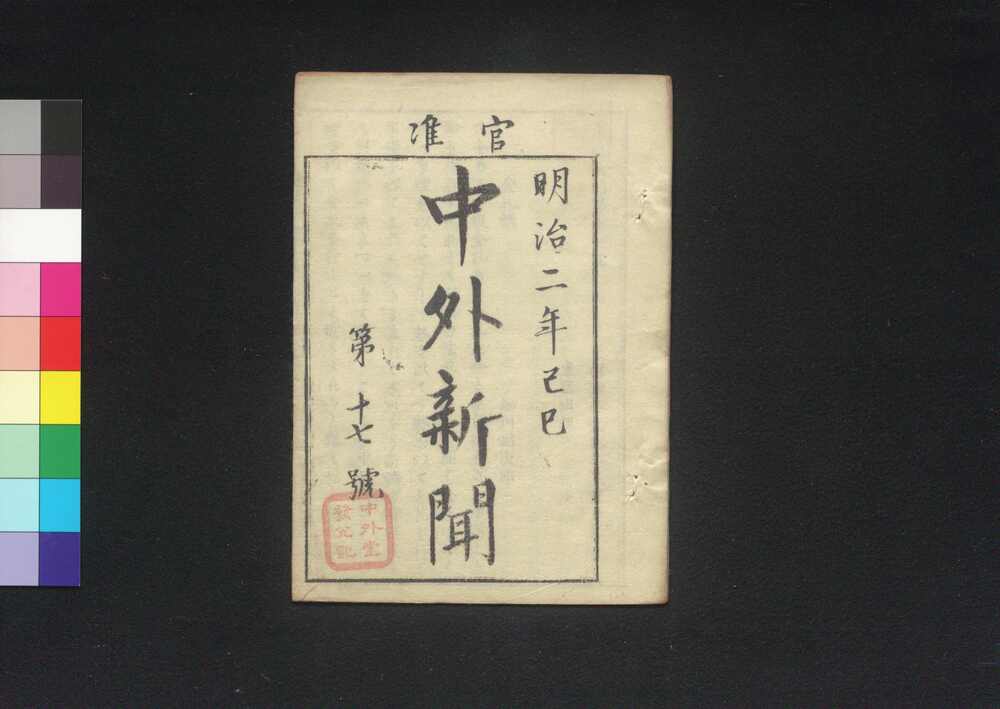 官准
明治二年己巳
中外新聞
第十七號
中外堂
發兌記